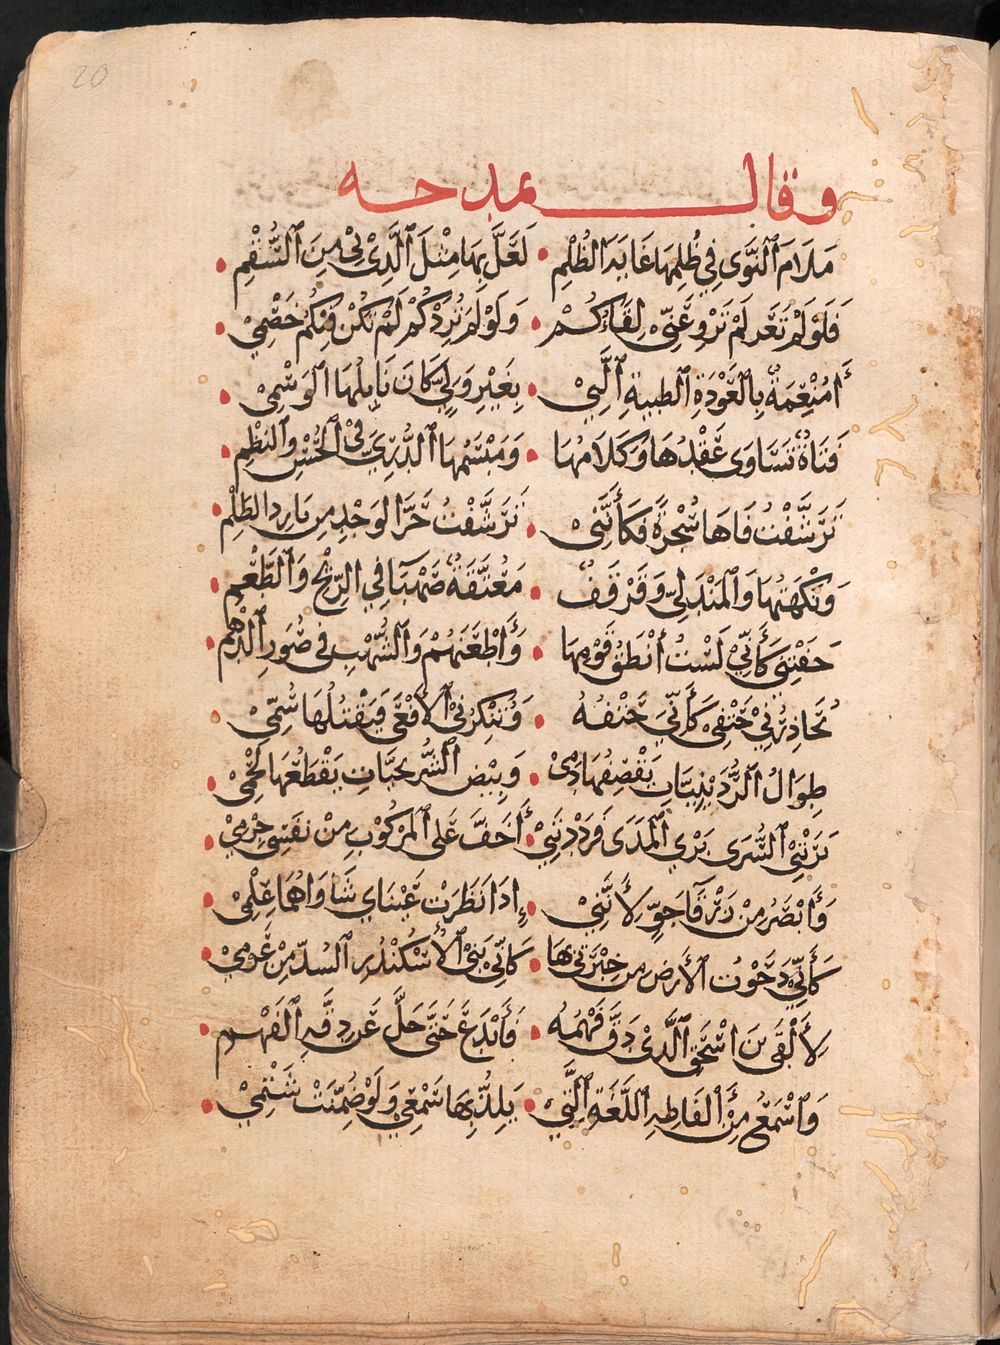 20
وقال يمدحه
مَلَامَ ٱلنَّوَى فِي ظُلْمِهَا غَايَةَ الظُلْمِ • لَعَلَّ بِهَا مِثْلَ ٱلَّذِيْ بِيْ مِنَ ٱلسُّقْمِ •
فَلَوْ لَمْ تَغَر لَمْ تَزْوِ عَنِّيْ لِقَاءَكُمْ • وَلَوْ لَمْ تُرِدْكُمْ لَمْ تَكُنْ فِيْكُمُ خَصْمِيْ •
أَمُنْعِمَةٌ بِالْعَوْدَةِ ٱلظبيةِ ٱلَّتِيْ • بِغَيْرِ وَلِيٍّ كَانَ نَايِلُهَا الوَسْمِيْ •
فَتَاةٌ تَسَاوَى عَقْدُهَا وَكَلَامُهَا • وَمَبْسَمُهَا ٱلدُّرِيّ فِيْ ٱلْحُسْنِ وَٱلنَّظْمِ •
تَرَشَّفْتُ فَاهَا سُحْرَةً فَكَأَنَّنِيْ • تَرَشَّفْتُ حَرَّ الوَجْدِ مِن بَارِدِ الظَلْمِ •
وَنَكْهَتُهَا وَٱلْمَنْدَلِيّ وَقَرْقَفٌ • مُعَتَّقَةٌ صَهْبَآ فِي الرِّيْحِ وَٱلطَّعْمِ •
جَفَتْنِيْ كَأَنِّيْ لَسْتُ أَنْطَقَ قَوْمِهَا • وَأَطْعَنَهُمْ وَٱلشُّهْبُ فِي صُوَرِ ٱلدُّهْمِ •
تُحَاذِرُنِيْ حَتْفِيْ كَأَنِّيَ حَتْفُهُ • وَتَنْكُزُنِيْ ٱلأَفْعَى فَيَقْتُلُهَا سُمِّيْ •
طِوَالُ ٱلرُّدَيْنِيَّاتِ يَقْصِفُهَا دَمِيْ • وَبِيْضُ ٱلسُّرَيْحيَّاتِ يَقْطَعُهَا لَحْمِيْ •
بَرَتْنِيْ ٱلسُّرَى بَرْيَ ٱلْمُدَى فَرَدَدْنَنِيْ • أَخَفَّ عَلَى ٱلْمَرْكُوْبِ مِنْ نَفَسِيْ جِرْمِيْ •
وَأَبْصَرَ مِنْ زَرْقَآ جَوٍّ لِأَنَّنِيْ • إِذَا نَظَرَتْ عَيْنَاي شَآوَاهُمَا عِلْمِيْ •
كَأَنِّيْ دَحَوْتُ ٱلأَرْضَ مِن خِبْرَتِيْ بِهَا • كَأَنِّيْ بَنَىْ ٱلأُسْكُنْدَرِ ٱلسُدّ مِنْ عَزْمِيْ •
لِأَلْقَى بْنَ إِسْحَقَ ٱلَّذِيْ دَقَّ فَهْمُهُ • فَأَبْدَعَ حَتَّى جَلَّ عَن دِقَّةِ ٱلْفَهْمِ •
وَٱسْمَعُ مِنْ أَلْفَاظِهِ ٱللُّغَةَ ٱلَّتِيْ • يَلِذُّ بِهَا سَمْعِيْ وَلَوْ ضُمِّنَتْ شَتْمِيْ •